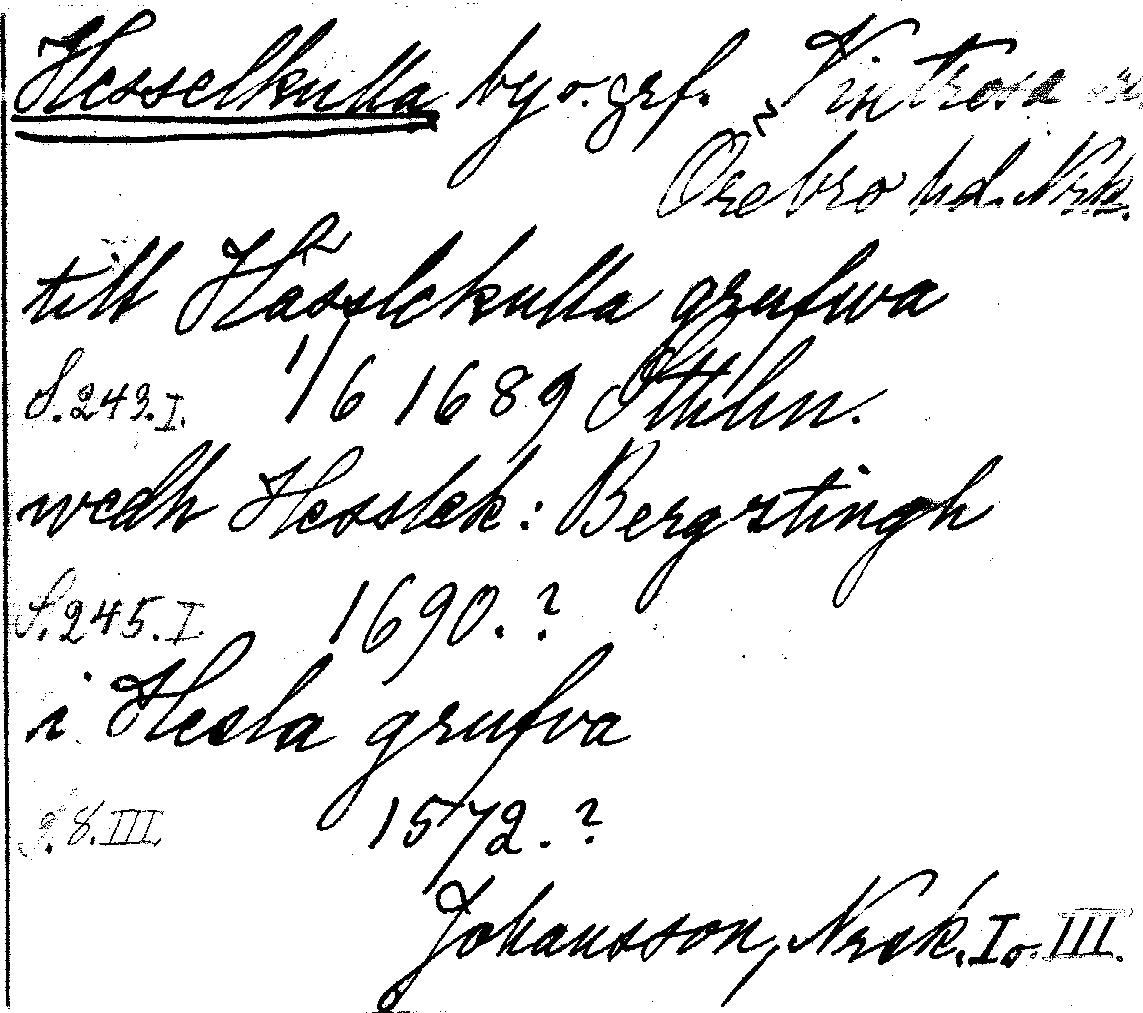 Hesselkulla by o. grf. Vintrosa sn,
Örebro hd. Nrk.
till Hässlekulla grufwa
S. 243. I. 1/6 1689 Sthlm.
wedh Hesslek: Bergztingh
S. 245. I 1690. ?
i Hesla grufva
S. 8. III. 1572. ?
Johansson, Nrck. I o. III.